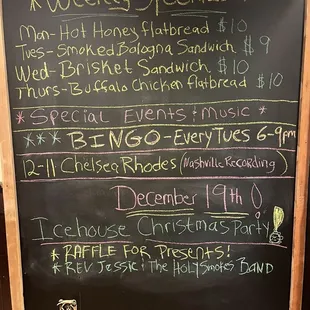 * Weekly Specials *
Mon-Hot Honey flatbread $10
Tues-Smoked Bologna Sandwich $9
Wed-Brisket Sandwich $10
Thurs-Buffalo Chicken flatbread $10
* Special Events & Music *
*** BINGO-Every Tues 6-9pm
12-11 Chelsea Rhodes (Nashville Recording)
December 19th
Icehouse Christmas Party!
* RAFFLE FOR Presents!
* REV Jessie & The HOLYSmokes BAND